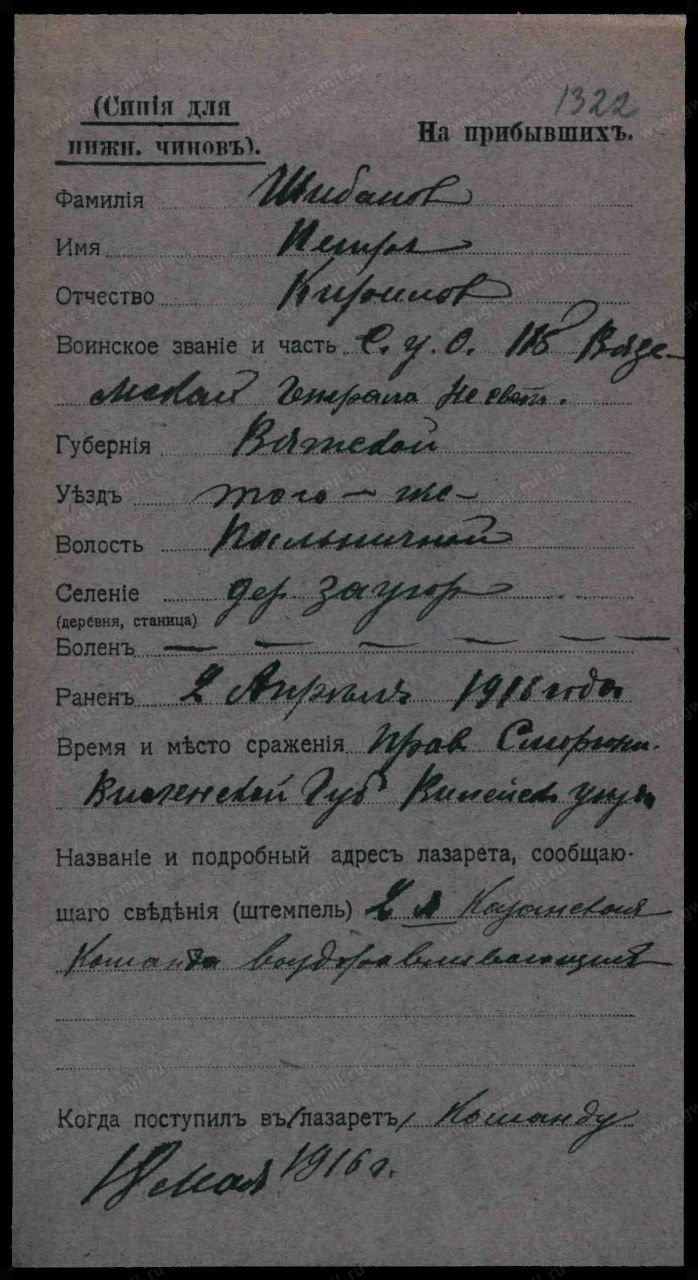 1322
(Синія для
нижн. чиновъ).
На прибывшихъ.
Фамилія Шибанов
Имя Петръ
Отчество Кирилов
Воинское званіе и часть С. у. О. Вязе-
мской Генерала Несвет.
Губернія Вятской
Уѣздъ того-же-
Волость
Селеніе дер загор
(деревня, станица)
Боленъ — — — — — —
Раненъ 2 Апреля 1916 года
Время и мѣсто сраженія Сморгони.
Виленской Губ Вилейск уезда
Названіе и подробный адресъ лазарета, сообщаю-
щаго свѣдѣнія (штемпель) 2 я Казанская
Команда воздоравливающих
Когда поступилъ въ /лазаретъ/ Команду
18 мая 1916 г.